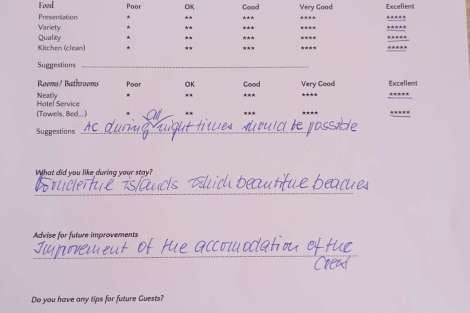 Food Poor OK Good Very Good Excellent
Presentation * ** *** **** *****
Variety * ** *** **** *****
Quality * ** *** **** *****
Kitchen (clean) * ** *** **** *****
Suggestions
Rooms/ Bathrooms Poor OK Good Very Good Excellent
Neatly * ** *** **** *****
Hotel Service
(Towels, Bed...) * ** *** **** *****
all
Suggestions AC during night times should be possible
What did you like during your stay?
Wonderful islands which beautiful beaches
Advise for future improvements
Improvement of the accomodation of the
Crew
Do you have any tips for future Guests?